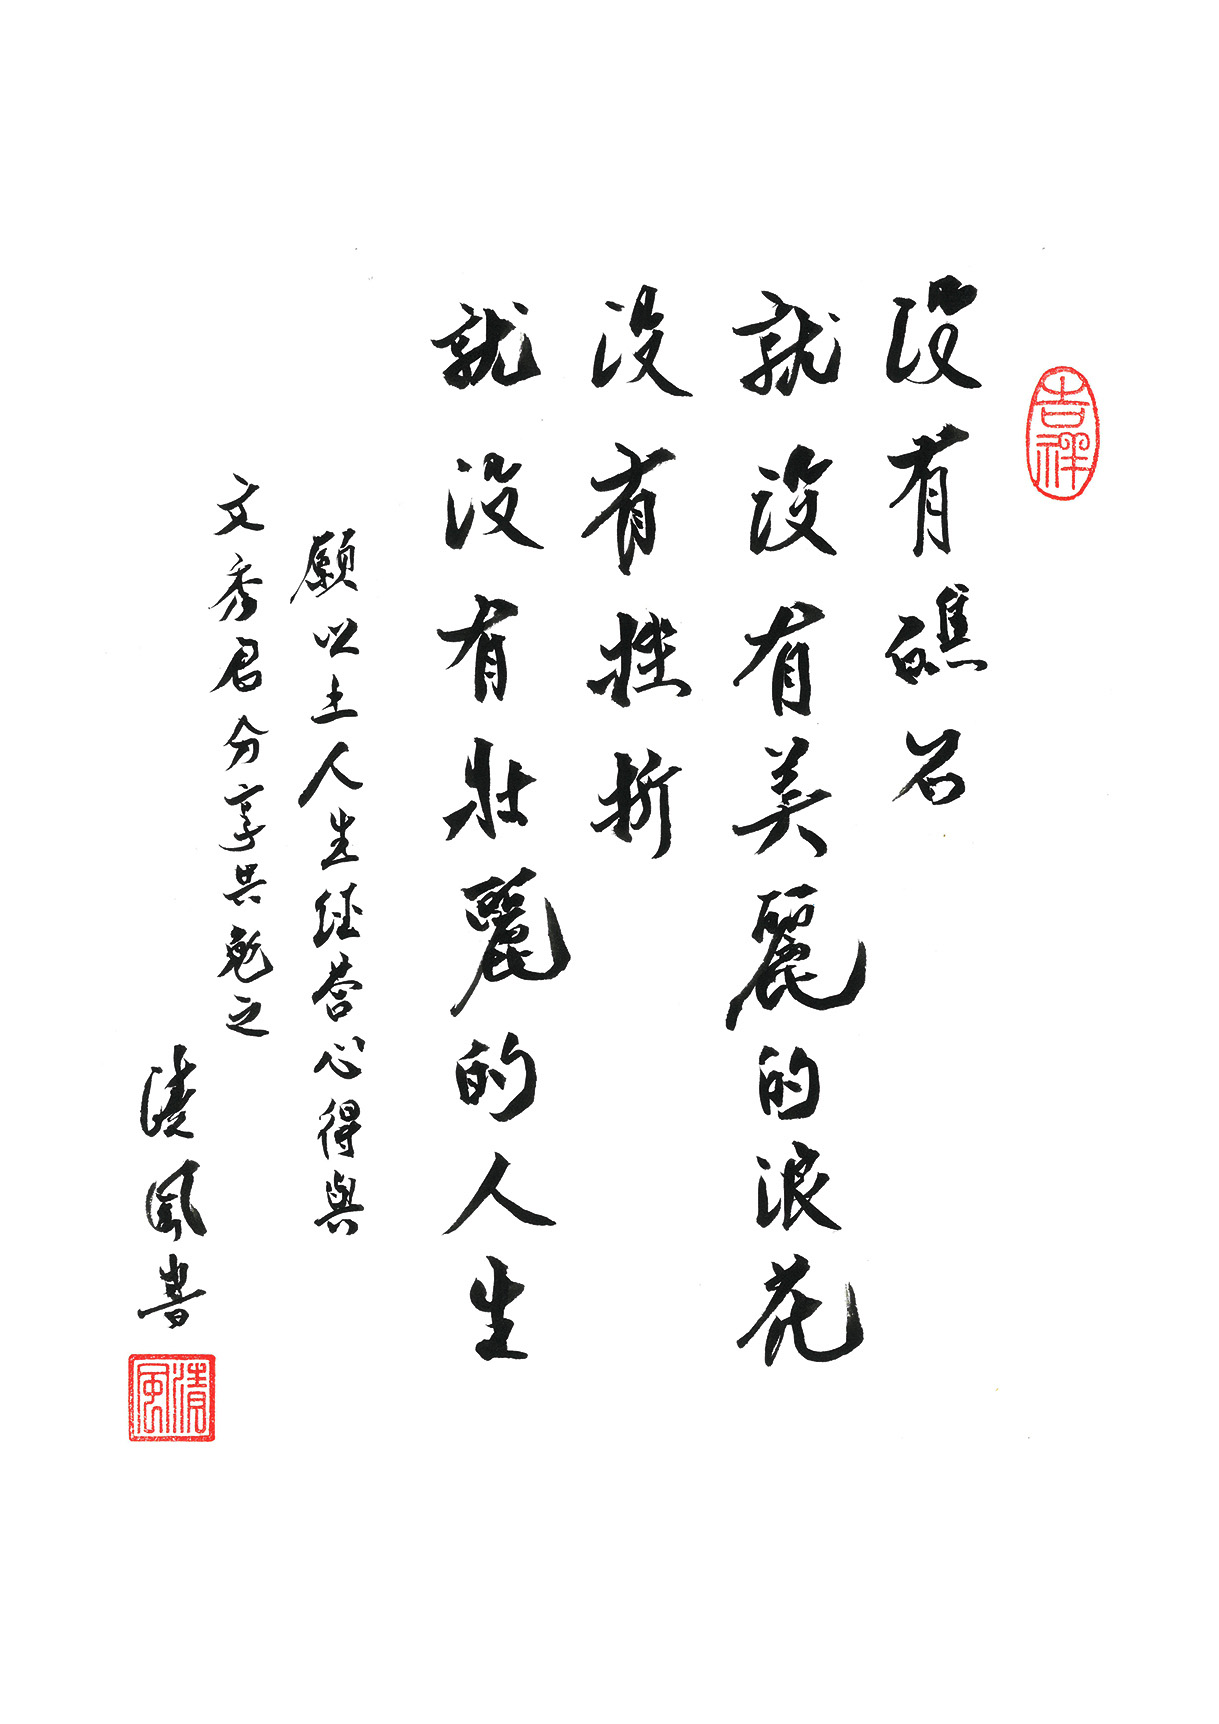 吉祥
沒有礁石
就沒有美麗的浪花
沒有挫折
就沒有壯麗的人生
願以上人生經營心得與
文秀君分享共勉之
清風書
清風